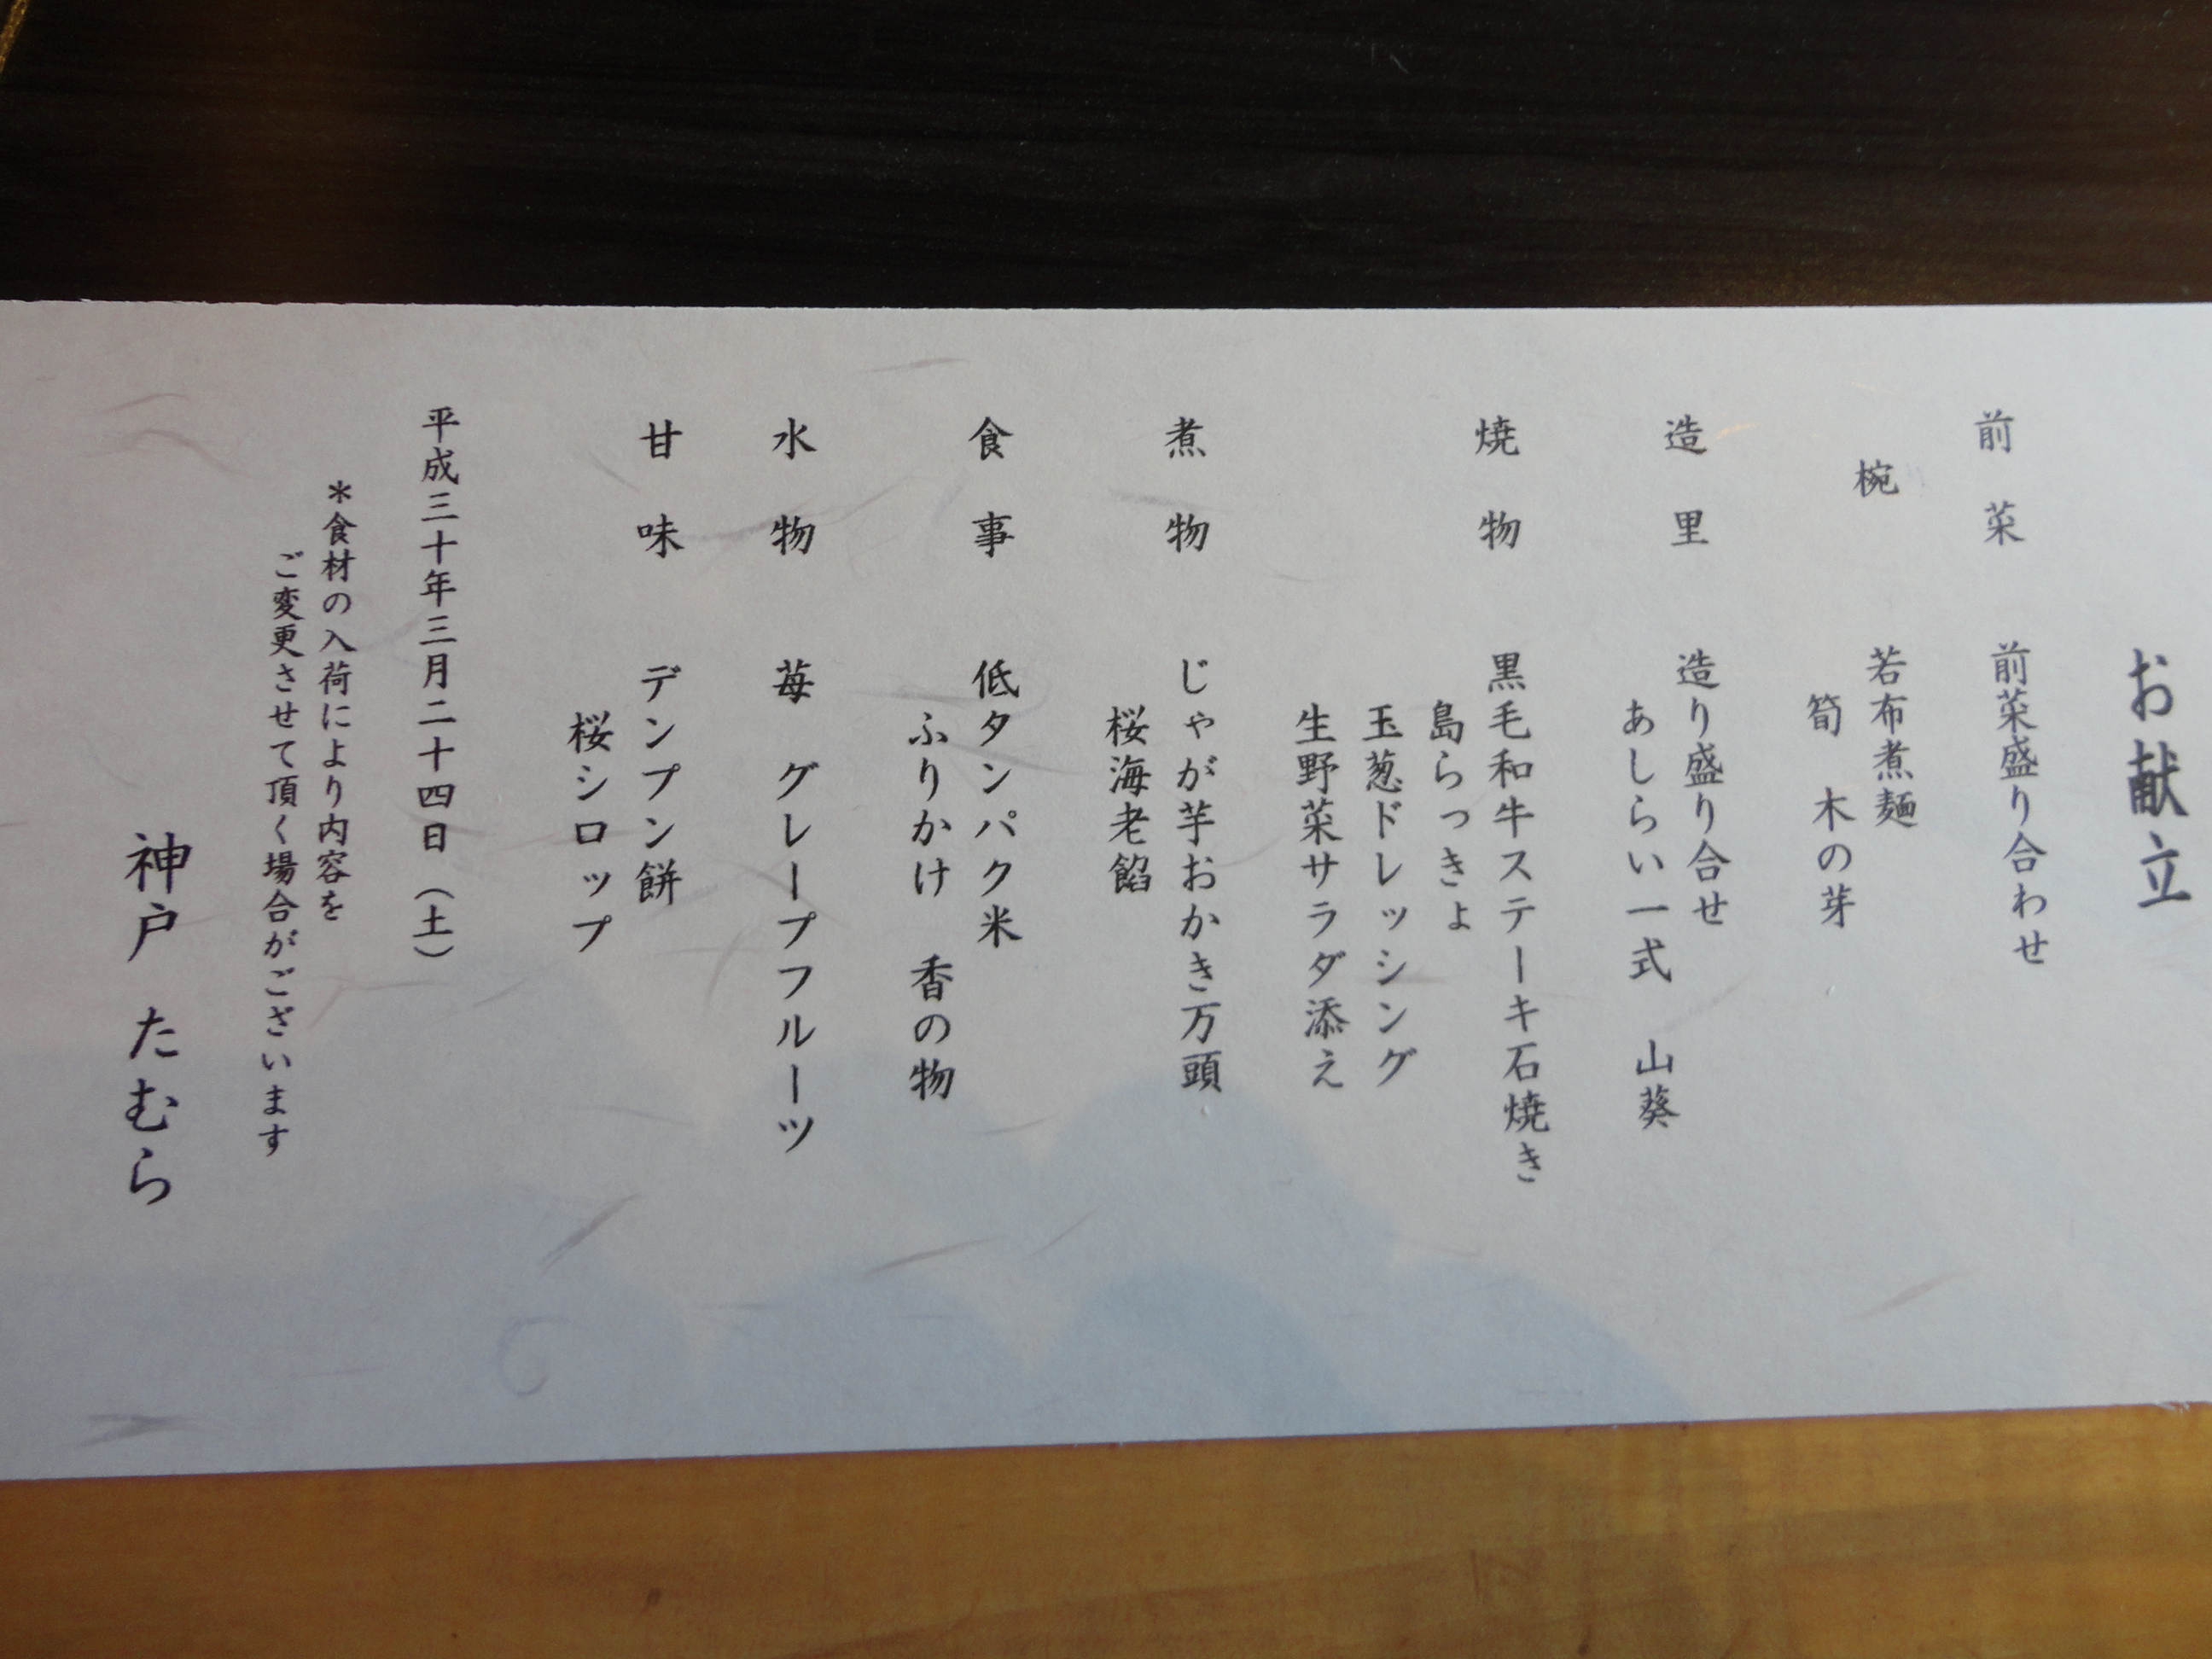 お献立
前菜　前菜盛り合わせ
椀　若布煮麺
筍　木の芽
造里　造り盛り合せ
あしらい一式　山葵
焼物　黒毛和牛ステーキ石焼き
島らっきょ
玉葱ドレッシング
生野菜サラダ添え
煮物　じゃが芋おかき万頭
桜海老餡
食事　低タンパク米
ふりかけ　香の物
水物　苺　グレープフルーツ
甘味　デンプン餅
桜シロップ
平成三十年三月二十四日（土）
＊食材の入荷により内容を
ご変更させて頂く場合がございます
神戸　たむら